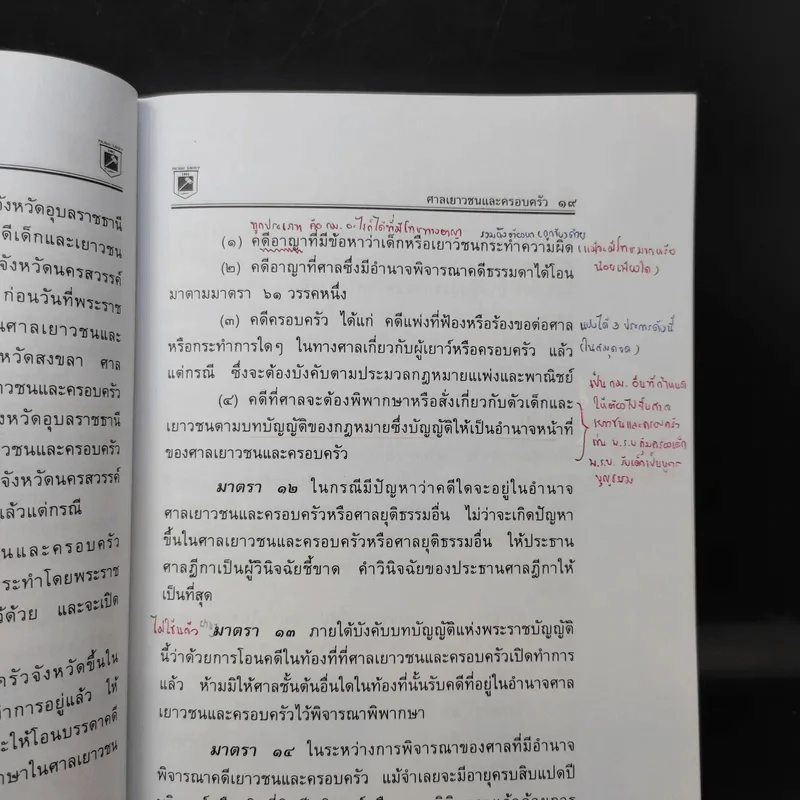 ศาลเยาวชนและครอบครัว ๑๙
ทุกประเภท คือ กม. อะไรก็ได้ที่มีโทษทางอาญา
(๑) คดีอาญาที่มีข้อหาว่าเด็กหรือเยาวชนกระทำความผิด (แม้จะมีโทษมากหรือ
น้อยเพียงใด)
(๒) คดีอาญาที่ศาลซึ่งมีอำนาจพิจารณาคดีธรรมดาได้โอน
มาตามมาตรา ๖๑ วรรคหนึ่ง
(๓) คดีครอบครัว ได้แก่ คดีแพ่งที่ฟ้องหรือร้องขอต่อศาล แบ่งได้ 3 ประการดังนี้
หรือกระทำการใดๆ ในทางศาลเกี่ยวกับผู้เยาว์หรือครอบครัว แล้ว
แต่กรณี ซึ่งจะต้องบังคับตามประมวลกฎหมายแพ่งและพาณิชย์
(๔) คดีที่ศาลจะต้องพิพากษาหรือสั่งเกี่ยวกับตัวเด็กและ
เยาวชนตามบทบัญญัติของกฎหมายซึ่งบัญญัติให้เป็นอำนาจหน้าที่
ของศาลเยาวชนและครอบครัว
เป็น กม. อื่นที่กำหนด
ให้ต้องไปขึ้นศาล
เยาวชนและครอบครัว
เช่น พ.ร.บ. คุ้มครองเด็ก
พ.ร.บ. รับเด็กเป็นบุตร
บุญธรรม
มาตรา ๑๒ ในกรณีมีปัญหาว่าคดีใดจะอยู่ในอำนาจ
ศาลเยาวชนและครอบครัวหรือศาลยุติธรรมอื่น ไม่ว่าจะเกิดปัญหา
ขึ้นในศาลเยาวชนและครอบครัวหรือศาลยุติธรรมอื่น ให้ประธาน
ศาลฎีกาเป็นผู้วินิจฉัยชี้ขาด คำวินิจฉัยของประธานศาลฎีกาให้
เป็นที่สุด
ไม่ใช้แล้ว มาตรา ๑๓ ภายใต้บังคับบทบัญญัติแห่งพระราชบัญญัติ
นี้ว่าด้วยการโอนคดีในท้องที่ที่ศาลเยาวชนและครอบครัวเปิดทำการ
แล้ว ห้ามมิให้ศาลชั้นต้นอื่นใดในท้องที่นั้นรับคดีที่อยู่ในอำนาจศาล
เยาวชนและครอบครัวไว้พิจารณาพิพากษา
มาตรา ๑๔ ในระหว่างการพิจารณาของศาลที่มีอำนาจ
พิจารณาคดีเยาวชนและครอบครัว แม้จำเลยจะมีอายุครบสิบแปดปี
จังหวัดอุบลราชธานี
คดีเด็กและเยาวชน
จังหวัดนครสวรรค์
ก่อนวันที่พระราช
นศาลเยาวชนและ
หวัดสงขลา ศาล
าวชนและครอบครัว
จังหวัดอุบลราชธานี
วชนและครอบครัว
จังหวัดนครสวรรค์
แล้วแต่กรณี
นและครอบครัว
ระทำโดยพระราช
ว้ด้วย และจะเปิด
ครัวจังหวัดขึ้นใน
ทำการอยู่แล้ว ให้
ะให้โอนบรรดาคดี
าษาในศาลเยาวชน